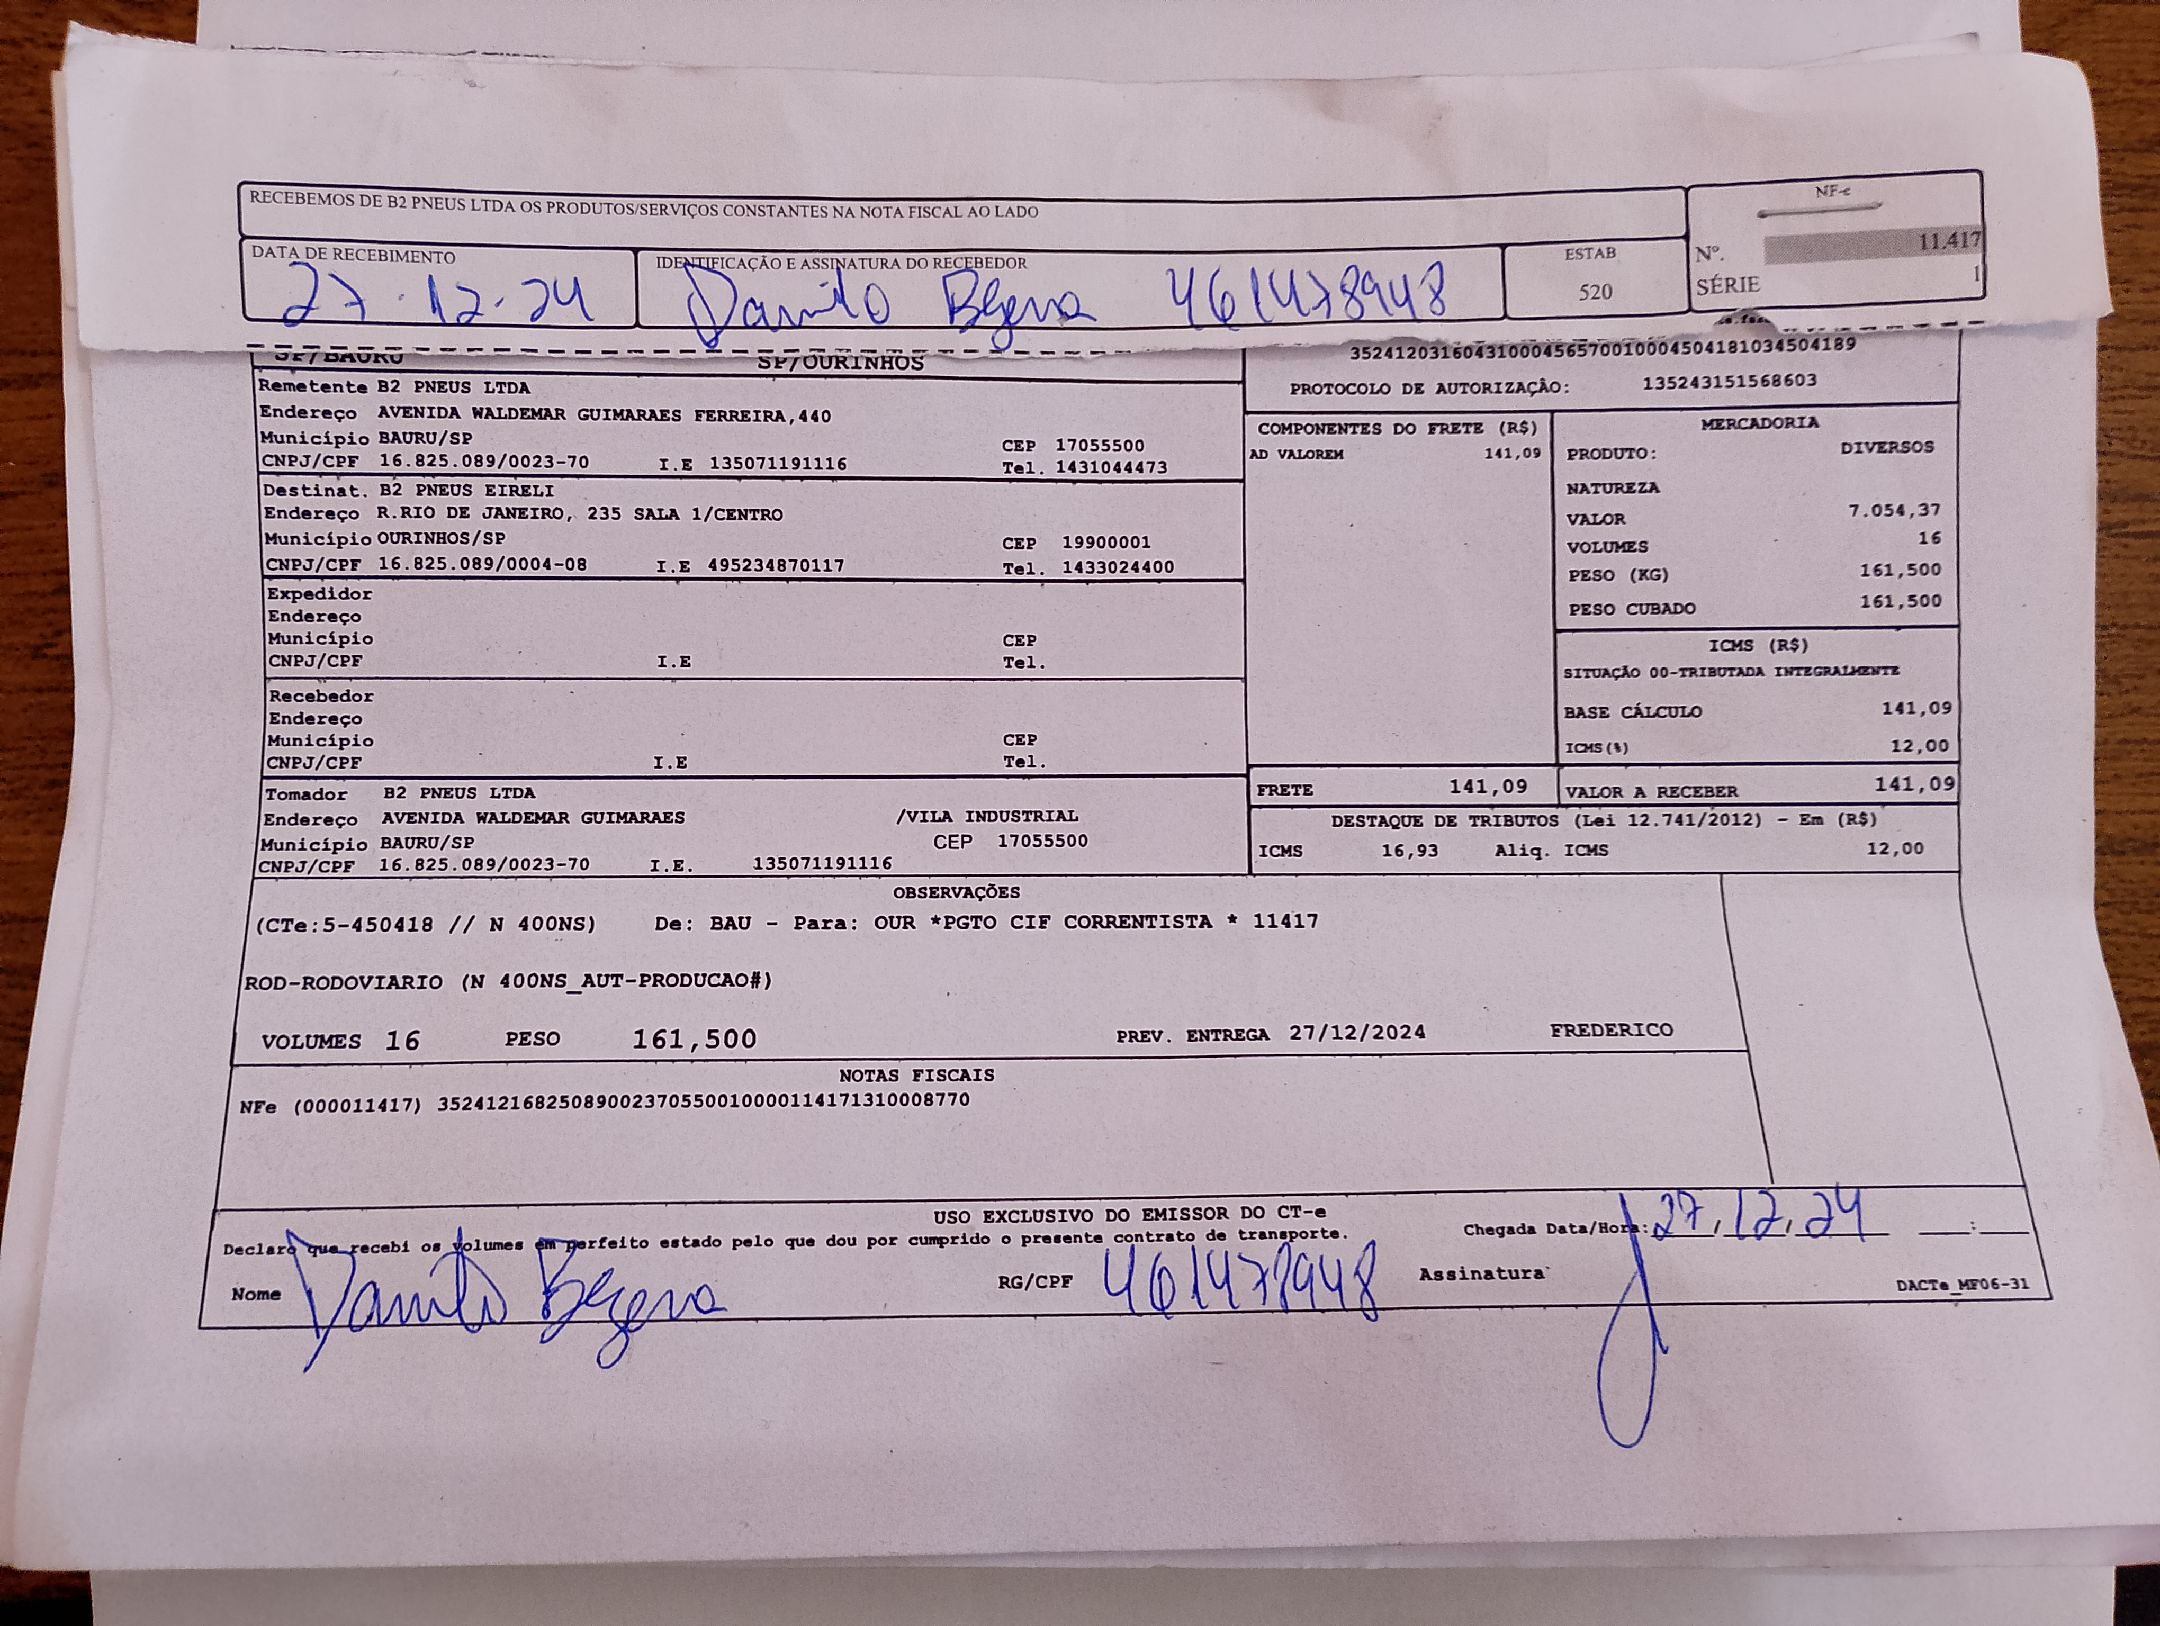 RECEBEMOS DE B2 PNEUS LTDA OS PRODUTOS/SERVIÇOS CONSTANTES NA NOTA FISCAL AO LADO
NF-e
Nº. 11.417
SÉRIE 1
DATA DE RECEBIMENTO
27.12.24
IDENTIFICAÇÃO E ASSINATURA DO RECEBEDOR
Danilo 461478948
ESTAB
520
SP/BAURU SP/OURINHOS
Remetente B2 PNEUS LTDA
Endereço AVENIDA WALDEMAR GUIMARAES FERREIRA,440
Município BAURU/SP CEP 17055500
CNPJ/CPF 16.825.089/0023-70 I.E 135071191116 Tel. 1431044473
Destinat. B2 PNEUS EIRELI
Endereço R.RIO DE JANEIRO, 235 SALA 1/CENTRO
Município OURINHOS/SP CEP 19900001
CNPJ/CPF 16.825.089/0004-08 I.E 495234870117 Tel. 1433024400
Expedidor
Endereço
Município CEP
CNPJ/CPF I.E Tel.
Recebedor
Endereço
Município CEP
CNPJ/CPF I.E Tel.
Tomador B2 PNEUS LTDA
Endereço AVENIDA WALDEMAR GUIMARAES /VILA INDUSTRIAL
Município BAURU/SP CEP 17055500
CNPJ/CPF 16.825.089/0023-70 I.E. 135071191116
35241203160431000456570010004504181034504189
PROTOCOLO DE AUTORIZAÇÃO: 135243151568603
COMPONENTES DO FRETE (R$)
AD VALOREM 141,09
MERCADORIA
PRODUTO: DIVERSOS
NATUREZA
VALOR 7.054,37
VOLUMES 16
PESO (KG) 161,500
PESO CUBADO 161,500
ICMS (R$)
SITUAÇÃO 00-TRIBUTADA INTEGRALMENTE
BASE CÁLCULO 141,09
ICMS(%) 12,00
FRETE 141,09 VALOR A RECEBER 141,09
DESTAQUE DE TRIBUTOS (Lei 12.741/2012) - Em (R$)
ICMS 16,93 Aliq. ICMS 12,00
OBSERVAÇÕES
(CTe:5-450418 // N 400NS) De: BAU - Para: OUR *PGTO CIF CORRENTISTA * 11417
ROD-RODOVIARIO (N 400NS_AUT-PRODUCAO#)
VOLUMES 16 PESO 161,500 PREV. ENTREGA 27/12/2024 FREDERICO
NOTAS FISCAIS
NFe (000011417) 35241216825089002370550010000114171310008770
USO EXCLUSIVO DO EMISSOR DO CT-e
Declaro que recebi os volumes em perfeito estado pelo que dou por cumprido o presente contrato de transporte.
Chegada Data/Hora: 27,12,24 :
Nome Danilo RG/CPF 461478948 Assinatura
DACTe_MF06-31